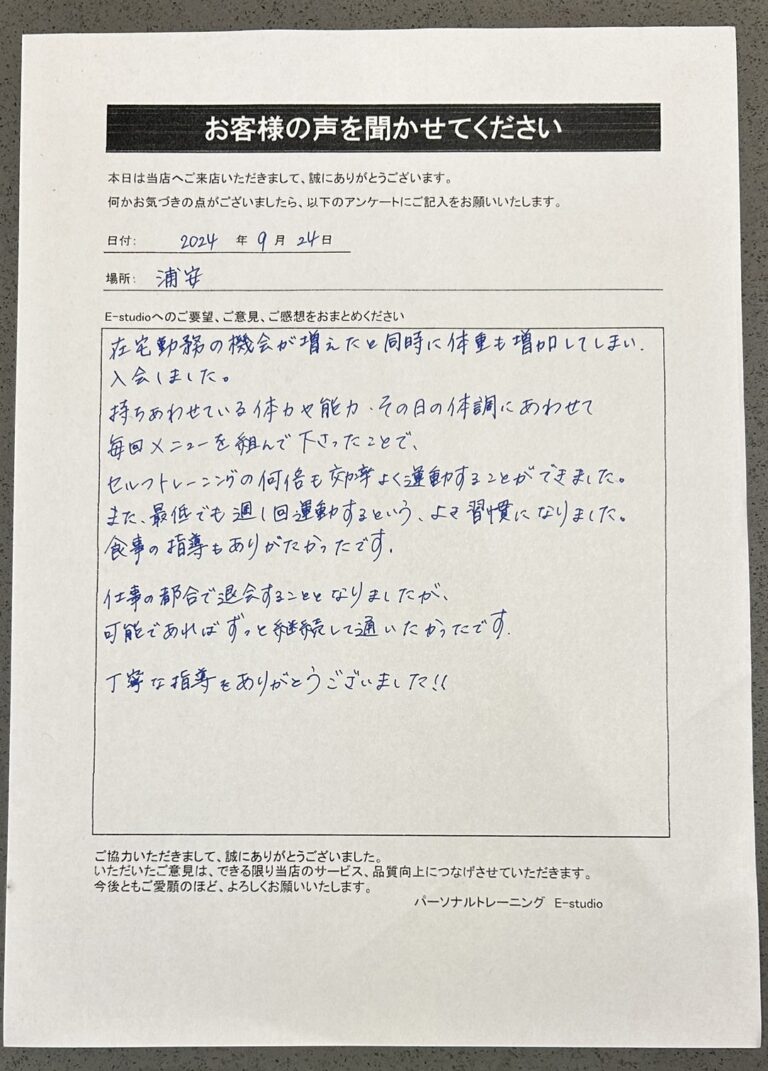 お客様の声を聞かせてください
本日は当店へご来店いただきまして、誠にありがとうございます。
何かお気づきの点がございましたら、以下のアンケートにご記入をお願いいたします。
日付: 2024 年 9 月 24 日
場所: 浦安
E-studioへのご要望、ご意見、ご感想をおまとめください
在宅勤務の機会が増えたと同時に体重も増加してしまい、
入会しました。
持ちあわせている体力や能力・その日の体調にあわせて
毎回メニューを組んで下さったことで、
セルフトレーニングの何倍も効率よく運動することができました。
また、最低でも週1回運動するという、よき習慣になりました。
食事の指導もありがたかったです。
仕事の都合で退会することとなりましたが、
可能であればずっと継続して通いたかったです。
丁寧な指導をありがとうございました!!
ご協力いただきまして、誠にありがとうございました。
いただいたご意見は、できる限り当店のサービス、品質向上につなげさせていただきます。
今後ともご愛顧のほど、よろしくお願いいたします。
パーソナルトレーニング E-studio